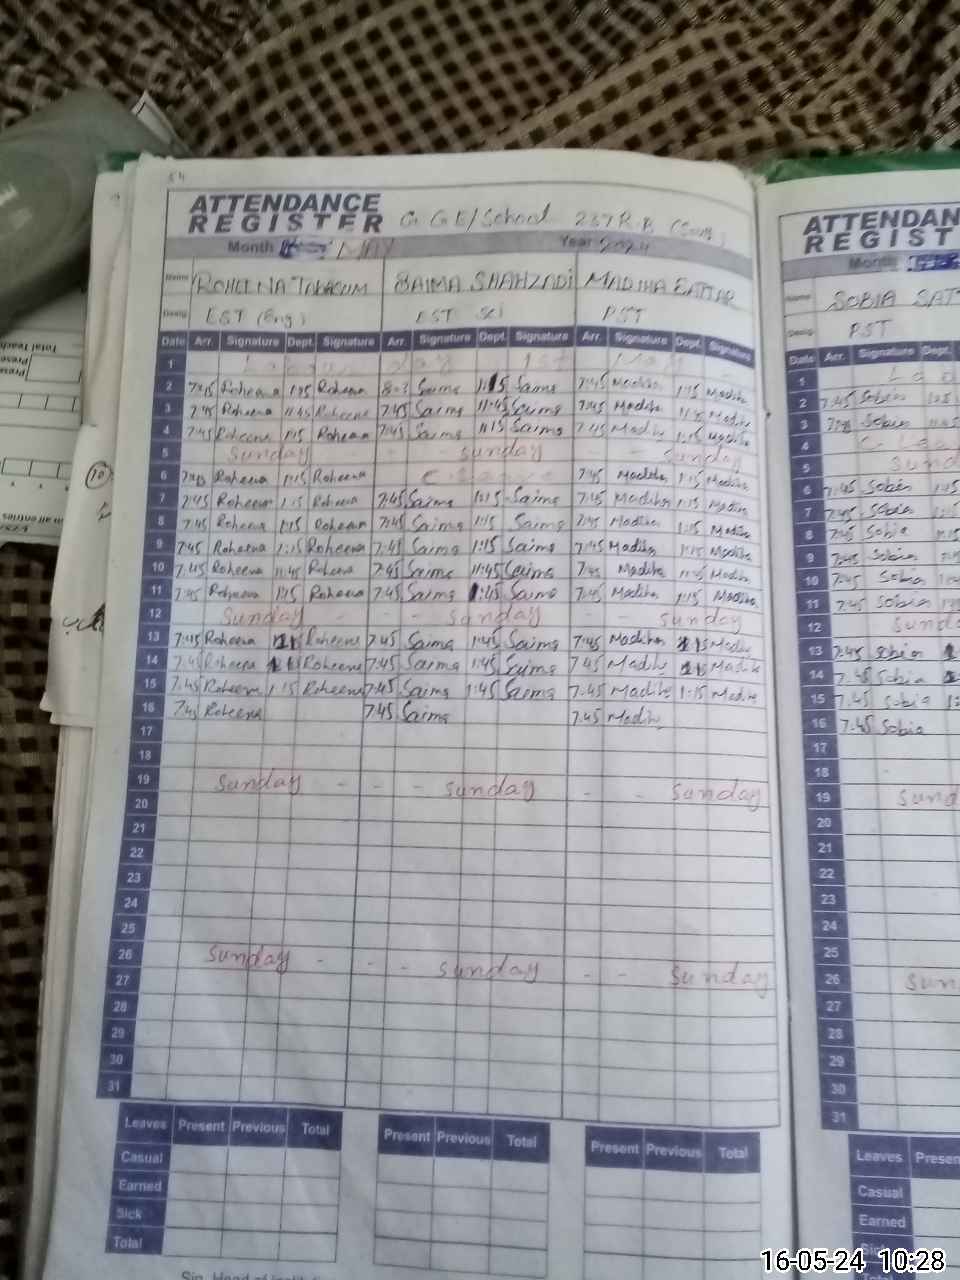 54
ATTENDANCE
REGISTER G. G E/School 237 R.B
Month MAY Year 2024
Name ROHEENA TABASUM SAIMA SHAHZADI MADIHA SATTAR
Desig EST (Eng) EST Sci PST
Date Arr. Signature Dept. Signature Arr. Signature Dept. Signature Arr. Signature Dept. Signature
1 Labour day 1st May
2 7:45 Roheena 1:15 Roheena Saima 1:15 Saima 7:45 Madiha 1:15 Madiha
3 7:45 Roheena 11:45 Roheena 7:45 Saima 11:45 Saima 7:45 Madiha 11:45 Madiha
4 7:45 Roheena 1:15 Roheena 7:45 Saima 1:15 Saima 7:45 Madiha 1:15 Madiha
5 Sunday - - - Sunday - - Sunday
6 7:45 Roheena 1:15 Roheena 7:45 Madiha 1:15 Madiha
7 7:45 Roheena 1:15 Roheena 7:45 Saima 1:15 Saima 7:45 Madiha 1:15 Madiha
8 7:45 Roheena 1:15 Roheena 7:45 Saima 1:15 Saima 7:45 Madiha 1:15 Madiha
9 7:45 Roheena 1:15 Roheena 7:45 Saima 1:15 Saima 7:45 Madiha 1:15 Madiha
10 7:45 Roheena 11:45 Roheena 7:45 Saima 11:45 Saima 7:45 Madiha 11:45 Madiha
11 7:45 Roheena 1:15 Roheena 7:45 Saima 1:45 Saima 7:45 Madiha 1:15 Madiha
12 Sunday - - - Sunday - Sunday
13 7:45 Roheena 1:15 Roheena 7:45 Saima 1:45 Saima 7:45 Madiha 1:15 Madiha
14 7:45 Roheena 1:15 Roheena 7:45 Saima 1:45 Saima 7:45 Madiha 1:15 Madiha
15 7:45 Roheena 1:15 Roheena 7:45 Saima 1:45 Saima 7:45 Madiha 1:15 Madiha
16 7:45 Roheena 7:45 Saima 7:45 Madiha
17
18
19 Sunday - - - Sunday - - Sunday
20
21
22
23
24
25
26 Sunday - - - Sunday - - Sunday
27
28
29
30
31
Leaves Present Previous Total Present Previous Total Present Previous Total
Casual
Earned
Sick
Total
ATTENDAN
REGIST
Month
Name SOBIA SAT
Desig PST
Date Arr. Signature Dept.
1
2 7:45 Sobia
3 Sobia
4
5 Sund
6 7:45 Sobia 1:45
7 7:45 Sobia
8 7:45 Sobia
9 7:45 Sobia
10 7:45 Sobia
11 7:45 Sobia
12 Sund
13 7:45 Sobia
14 7:45 Sobia
15 7:45 Sobia
16 7:45 Sobia
17
18
19 Sund
20
21
22
23
24
25
26 Sun
27
28
29
30
31
Leaves Presen
Casual
Earned
Sick
Total Teach
Present
in all entries
10
16-05-24 10:28